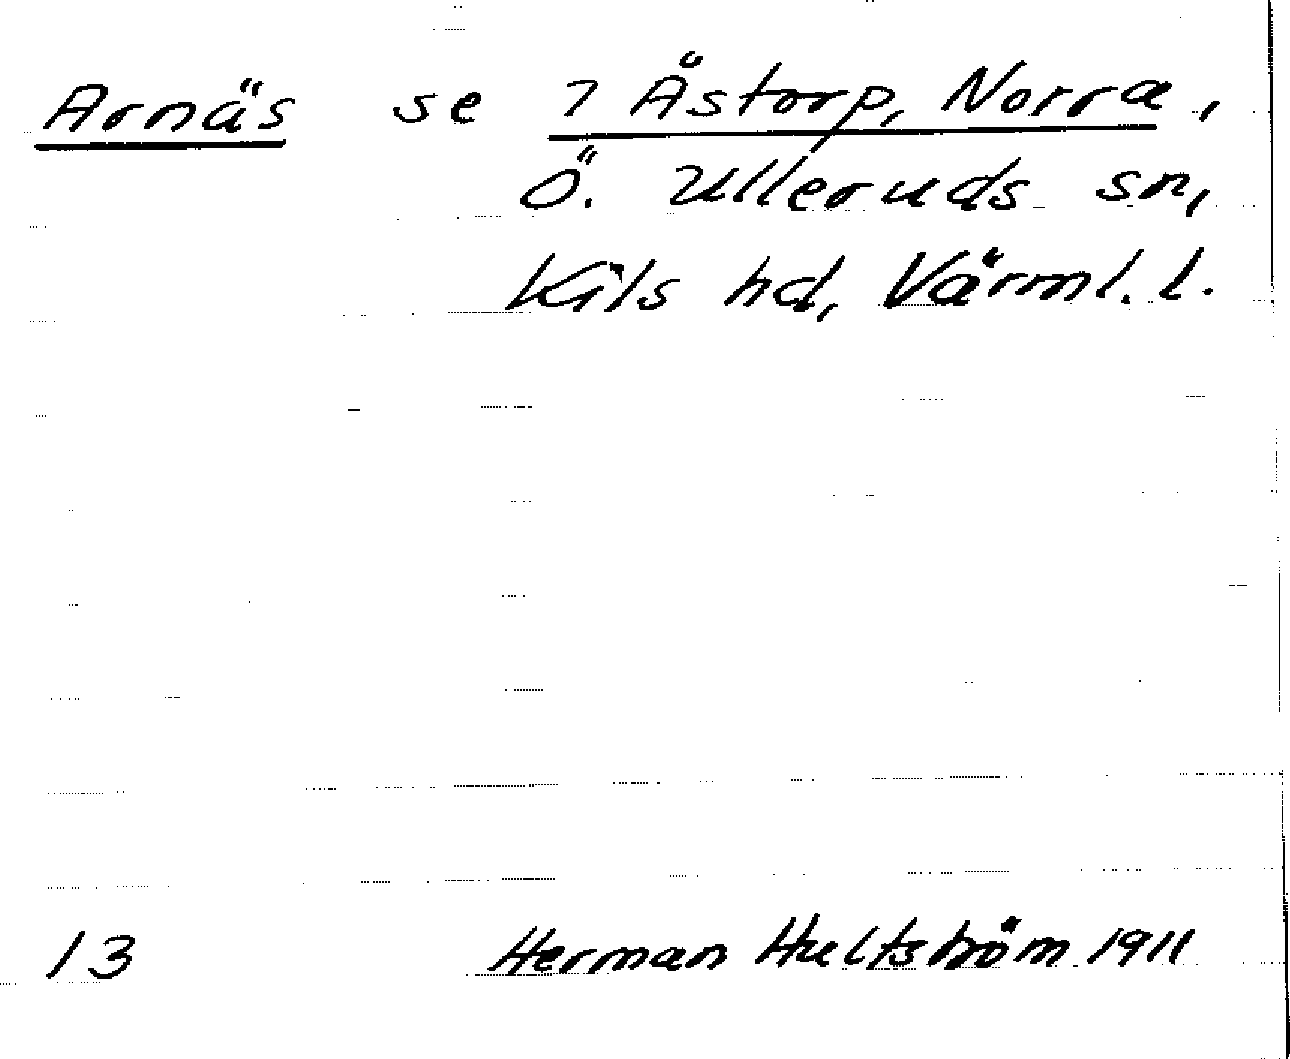 Arnäs se 7 Åstorp, Norra,
Ö. Ulleruds sn,
Kils hd, Värml. l.
13 Herman Hultström 1911